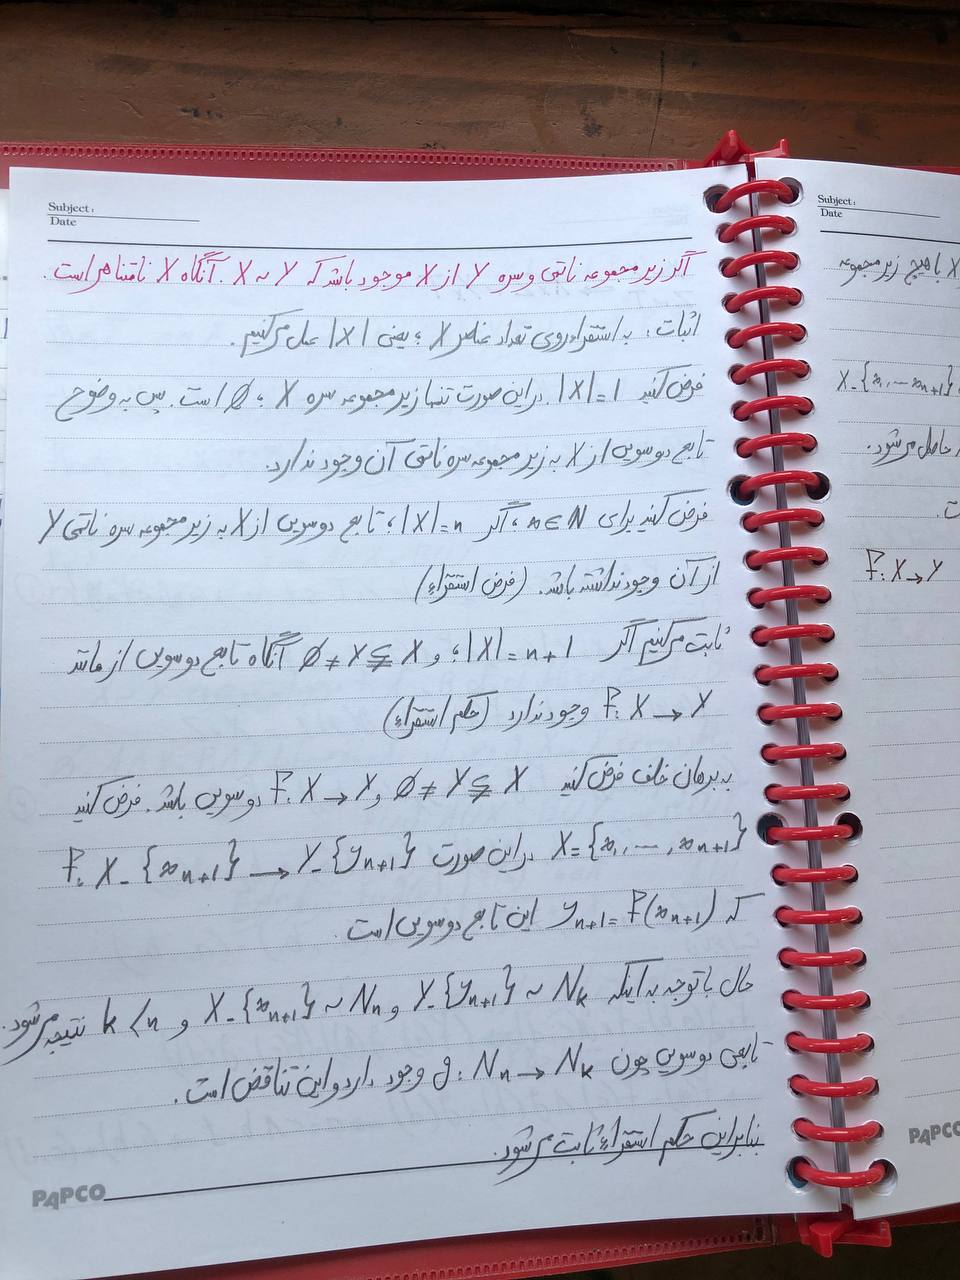 Subject:
Date
اگر زیر مجموعه ناتهی و سره Y از X موجود باشد که X ~ Y. آنگاه X نامتناهی است.
اثبات: به استقراء روی تعداد عناصر X؛ یعنی |X| عمل می‌کنیم.
فرض کنید |X|=1. در این صورت تنها زیر مجموعه سره X، ∅ است. پس به وضوح
تابع دوسویی از X به زیر مجموعه سره ناتهی آن وجود ندارد.
فرض کنید برای n∈N، اگر |X|=n، تابع دوسویی از X به زیر مجموعه سره ناتهی Y
از آن وجود نداشته باشد. (فرض استقراء)
ثابت می‌کنیم اگر |X|=n+1؛ و ∅≠Y⊊X آنگاه تابع دوسویی از مانند
F: X→Y وجود ندارد (حکم استقراء)
به برهان خلف فرض کنید ∅≠Y⊊X و F: X→Y دوسویی باشد. فرض کنید
X={x1,…,xn+1} در این صورت F: X-{xn+1}→Y-{yn+1}
که yn+1=F(xn+1) این تابع دوسویی است
حال با توجه به اینکه Y-{yn+1}~Nk و X-{xn+1}~Nn و k<n نتیجه می‌شود.
تابعی دوسویی چون g: Nn→Nk وجود دارد و این تناقض است.
بنابراین حکم استقراء ثابت می‌شود.
PAPCO
Subject:
Date
X با هیچ زیر مجموعه
X-{x1,…xn+1}
حاصل می‌شود.
F: X→Y
PAPCO